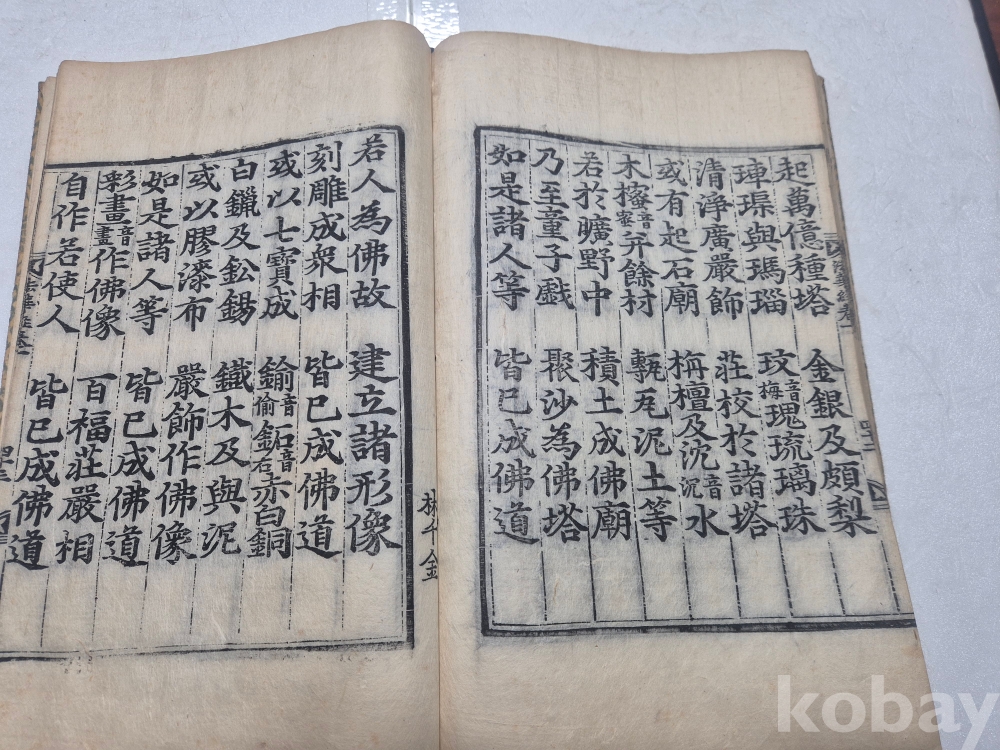 起萬億種塔 金銀及頗梨
𤥭璖與瑪瑙 玫音梅瑰琉璃珠
清淨廣嚴飾 莊校於諸塔
或有起石廟 栴檀及沉音沉水
木櫁音蜜并餘材 甎瓦泥土等
若於曠野中 積土成佛廟
乃至童子戲 聚沙為佛塔
如是諸人等 皆已成佛道
林千金
若人為佛故 建立諸形像
刻雕成衆相 皆已成佛道
或以七寶成 鍮音偷鉐音石赤白銅
白鑞及鈆錫 鐵木及與泥
或以膠漆布 嚴飾作佛像
如是諸人等 皆已成佛道
彩畫音畫作佛像 百福莊嚴相
自作若使人 皆已成佛道
kobay